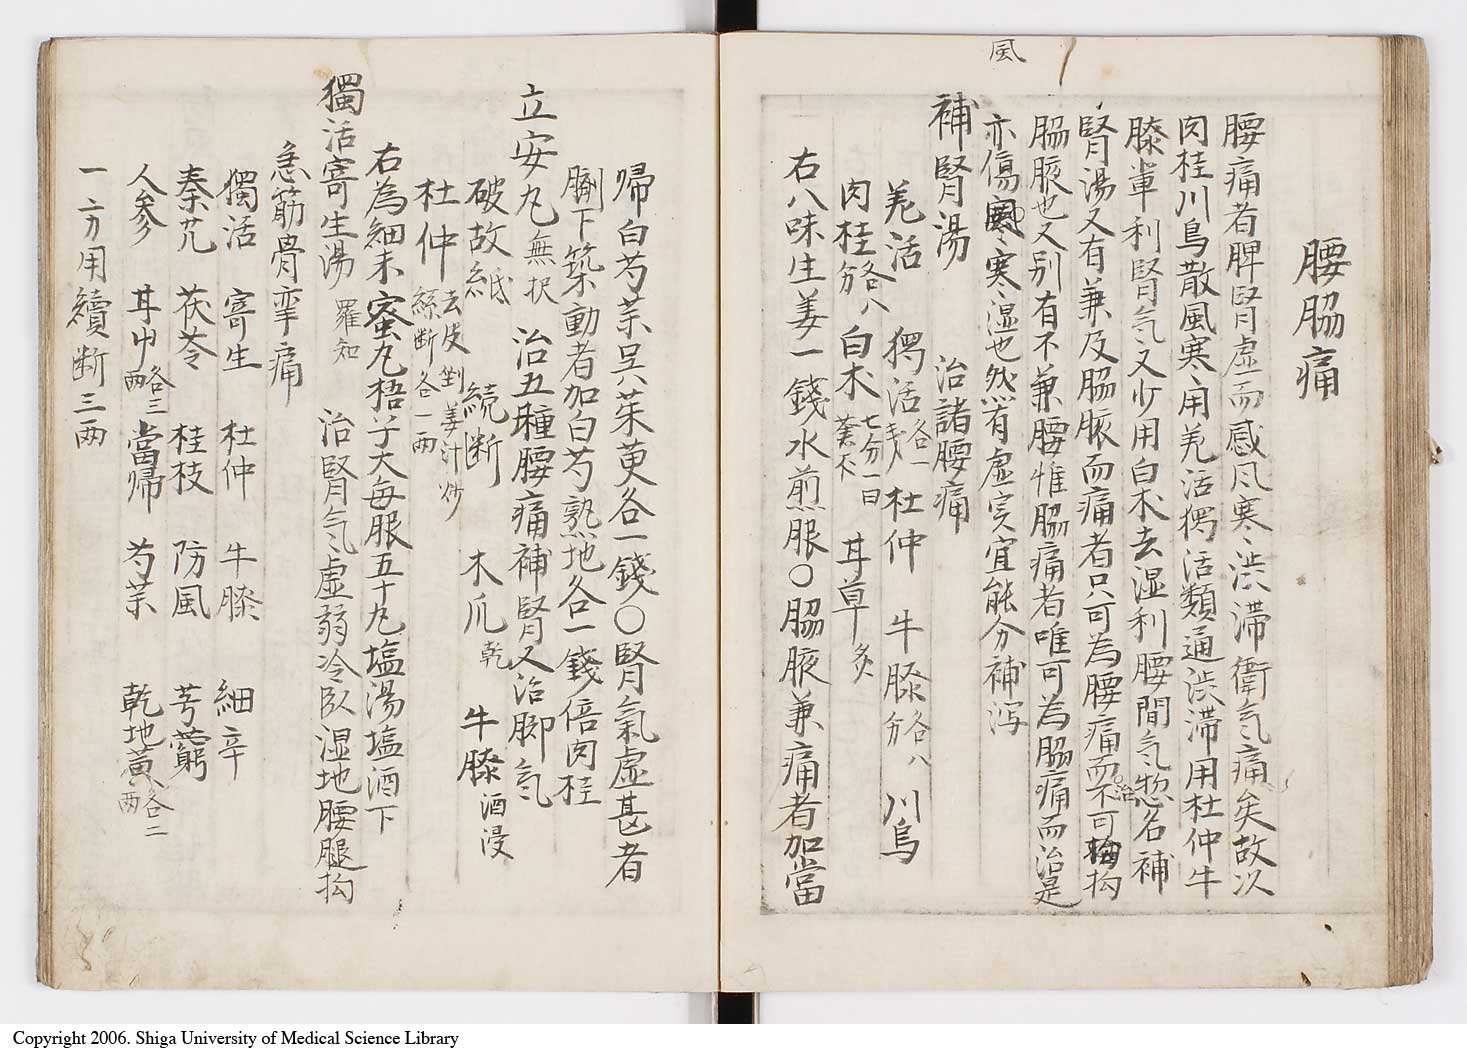 風
腰脇痛
腰痛者脾腎虚而感风寒〻渋滞衛气痛矣故次
肉桂川烏散風寒用羌活獨活類通渋滞用杜仲牛
膝輩利腎气又少用白朮去湿利腰間气惣名補
腎湯又有兼及脇腋而痛者只可為腰痛而不可拘
治
脇腋也又别有不兼腰惟脇痛者唯可為脇痛而治是
亦傷寒湿也然有虚实宜能分補瀉
補腎湯 治諸腰痛
羌活 獨活各一戋 杜仲 牛膝各八分 川烏
肉桂各八分 白朮七分一曰蒼朮 耳草炙
右八味生姜一錢水煎服〇脇腋兼痛者加當
帰白芍茱呉茱萸各一錢〇腎氣虚甚者
臍下築動者加白芍熟地各一錢倍肉桂
立安丸無択 治五種腰痛補腎又治脚气
破故紙 続断 木瓜乾 牛膝酒浸
杜仲去皮剉姜汁炒絲断各一两
右為細末蜜丸梧子大每服五十丸塩湯塩酒下
獨活寄生湯羅知 治腎气虚弱冷臥湿地腰腿拘
急筋骨挛痛
獨活 寄生 杜仲 牛膝 細辛
秦艽 茯苓 桂枝 防風 芎藭
人参 耳中各三两 當帰 芍茱 乾地黄各二两
一方用續断三两
Copyright 2006. Shiga University of Medical Science Library